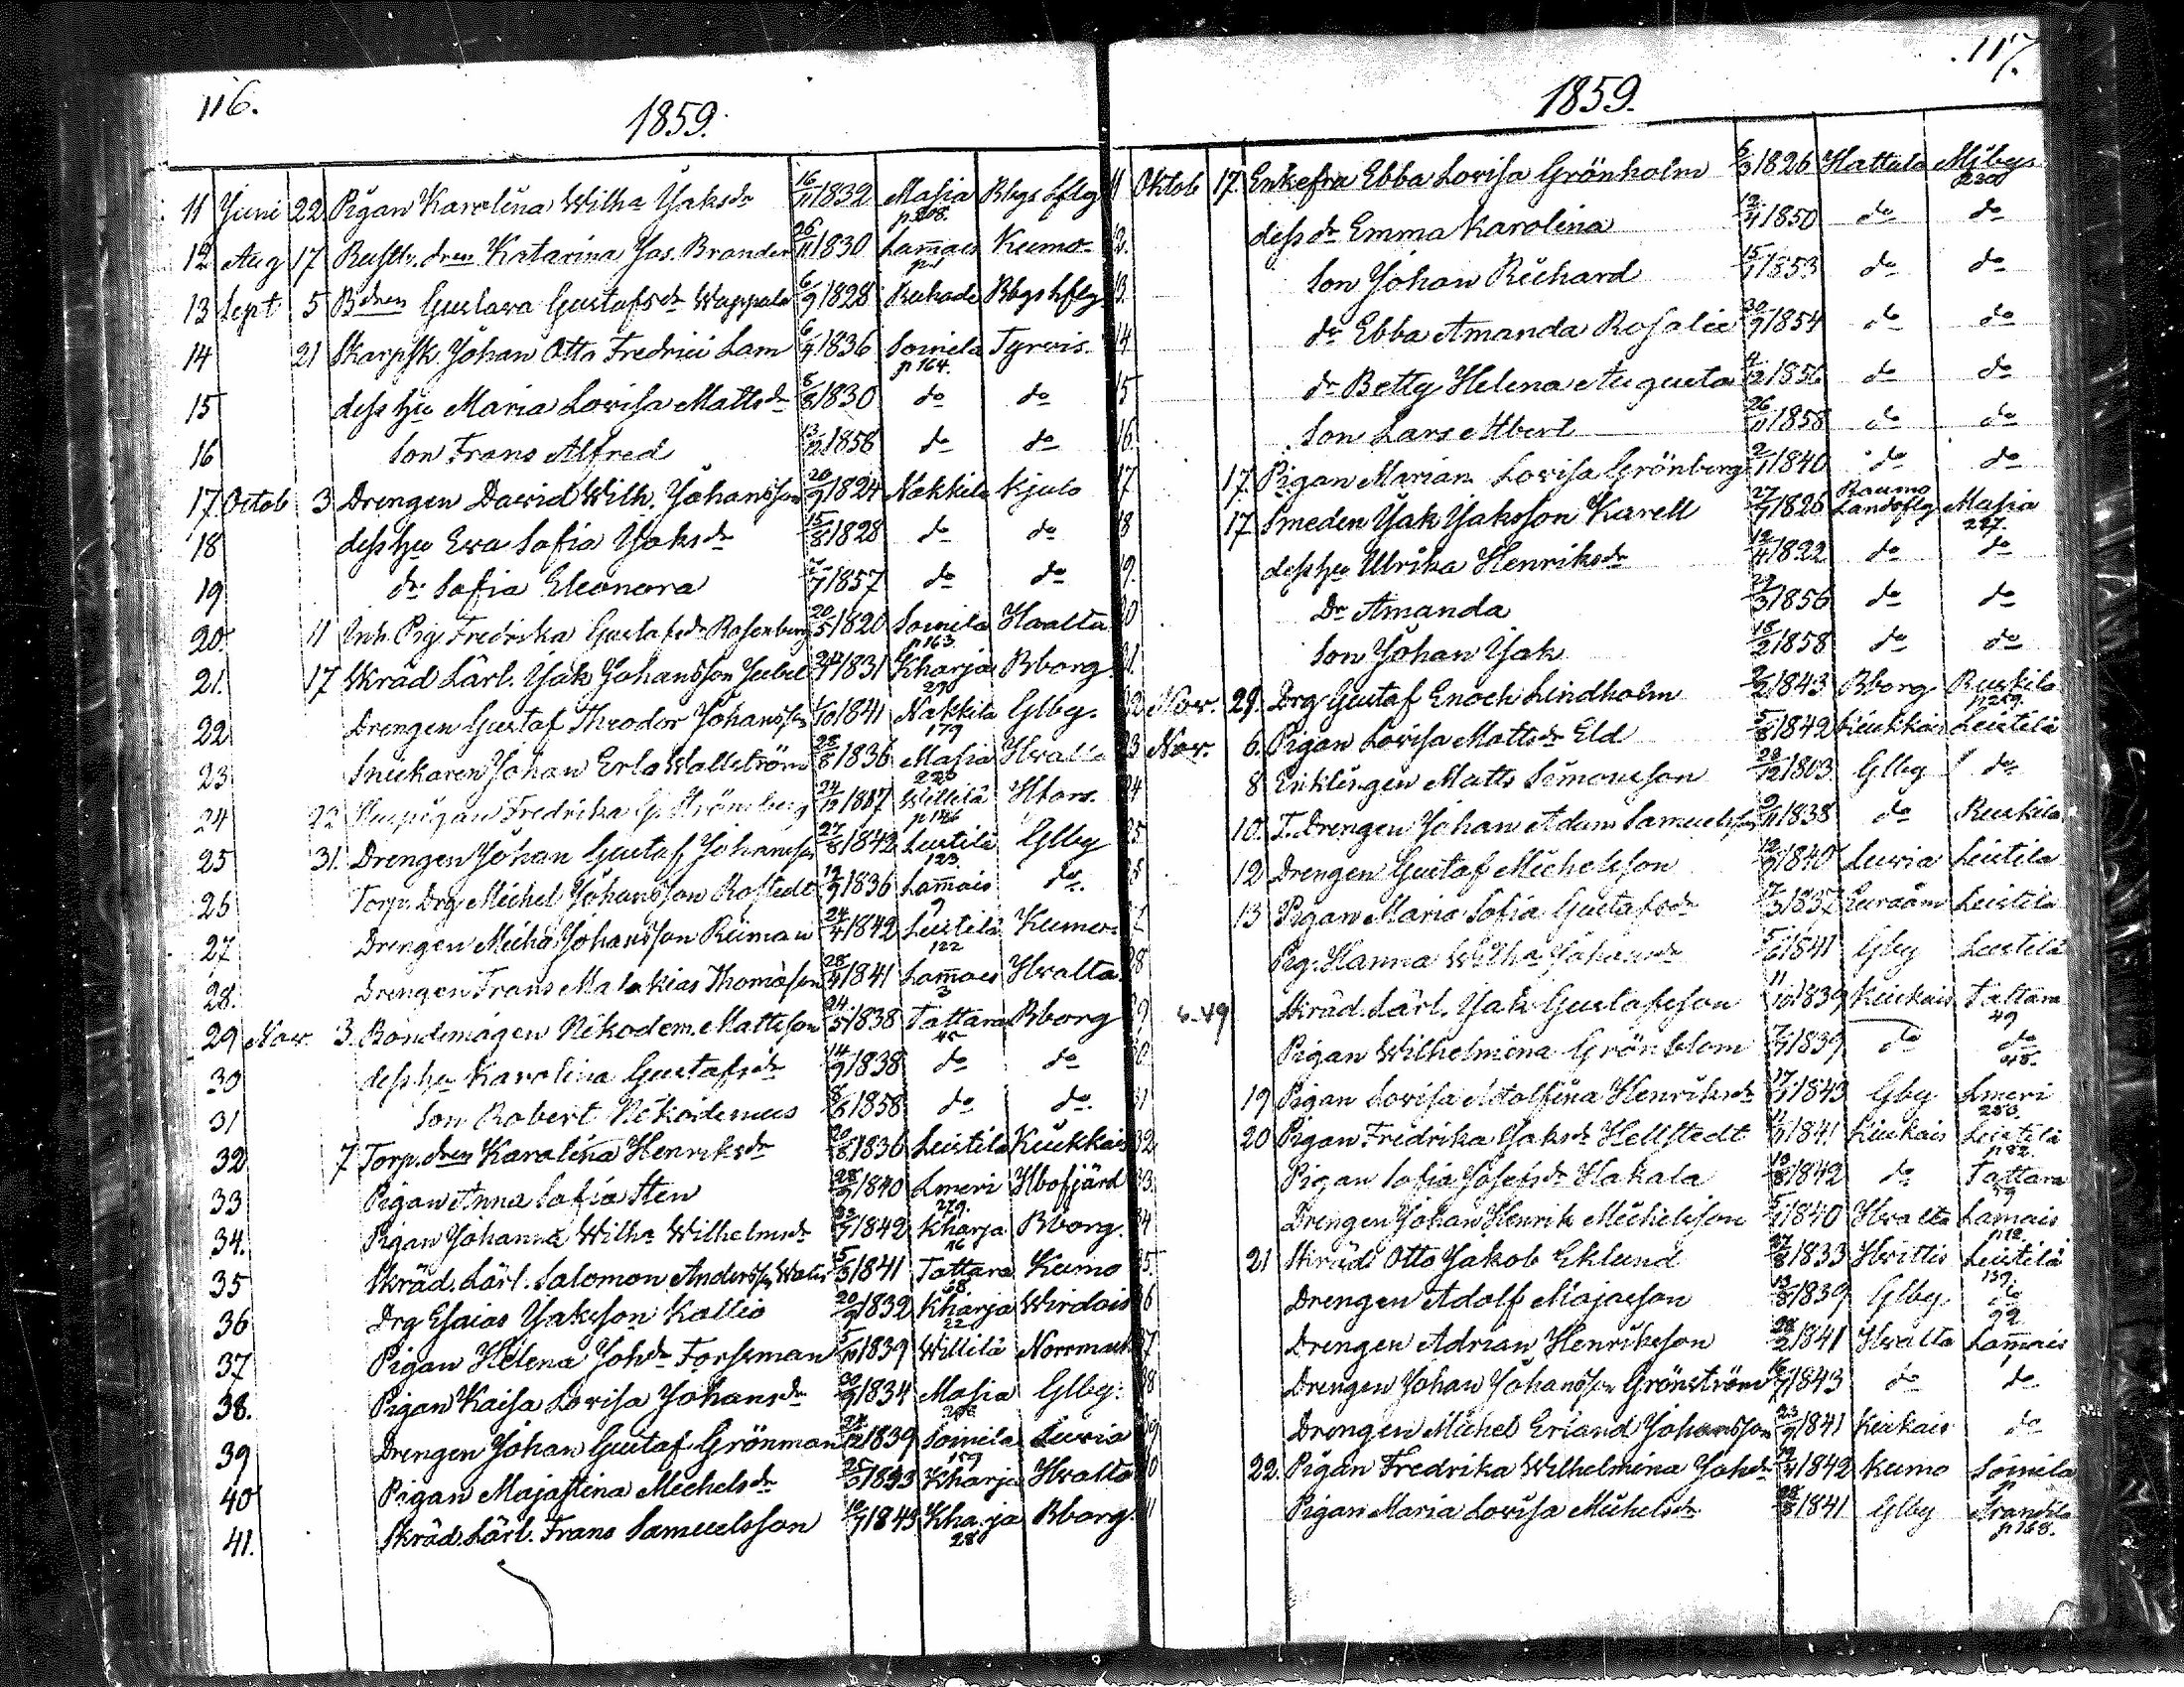 116.
1859.
11 Juni 22 Pigan Karolina Wilha Jaksdr 16/11 1832 Masia p 208. Bbgs Lflg
12 Aug 17 Rustb. dren Katarina Jos. Brander 26/11 1830 Lam̄ais p 1 Kumo
13 Sept 5 Bdren Gustava Gustafsdr Wappula 6/9 1828 Bbgs Lflg
14 21 Skarpsk. Johan Otto Fredrici Lam 6/4 1836 Soinila p 164. Tyrvis.
15 dess hu Maria Lovisa Mattsdr 8/8 1830 do do
16 Son Frans Alfred 13/12 1858 do do
17. Octob 3 Drengen David Wilh. Johansson 20/9 1824 Nakkila Kjulo
18 dess hu Eva Sofia Jaksdr 15/8 1828 do do
19 dr Sofia Eleonora 7/7 1857 do do
20. 11 Inh. Pig. Fredrika Gustafsdr Rosenberg 20/5 1820 Soinila p 163 Hvalta
21. 17 Skräd Lärl. Jak Johansson 24/4 1831 Kharja 290 Bborg
22 Drengen Gustaf Theodor Johansson 1/10 1841 Nakkila 179 Glby.
23 Snickaren Johan Erl. Wallström 28/8 1836 Masia 223 Hvalta
24 22 Fredrika G. Strömberg 24/12 1807 Willilä p 146 Hfors.
25 31. Drengen Johan Gustaf Johansson 27/8 1842 Leistilä 123. Glby
26 Torp. Drg Michel Johansson Rostedt 12/9 1836 Lam̄ais 9 do.
27 Drengen Mich. Johansson Riiman 24/4 1842 Leistilä 122 Kumo
28. Drengen Frans Malakias Thomasson 28/4 1841 Lam̄ais 3 Hvalta
29 Nov. 3. Bondemågen Nikodem. Mattsson 24/5 1838 Tattara 45 Bborg
30 dess hu Karolina Gustafsdr 14/9 1838 do do
31 Son Robert Nikodemus 8/6 1858 do do
32 7 Torp. dren Karolina Henriksdr 20/8 1836 Leistilä Kiukkais
33 Pigan Anna Sofia Sten 28/7 1840 Lmeri 279. Hbofjärd
34. Pigan Johanna Wilha Wilhelmsdr 1842 Kharja 16 Bborg.
35 Skräd. Lärl. Salomon Andersson 5/3 1841 Tattara 68 Kumo
36 Drg Esaias Jaksson Kallio 20/9 1832 Kharja 22 Wirdois
37 Pigan Helena Johdr Forssman 5/10 1839 Willilä Norrmark
38. Pigan Kaisa Lovisa Johansdr 20/9 1834 Masia Glby.
39 Drengen Johan Gustaf Grönman 1839 Soinila 159 Luvia
40 Pigan Majastina Michelsdr Kharja Hvalta
41. Skräd. Lärl. Frans Samuelsson 1843 Kharja 28 Bborg.
117.
1859.
11 Oktob 17. Enkefru Ebba Lovisa Grönholm 6/3 1826 Hattula Mjbys p 200
2. dess dr Emma Karolina 12/4 1850 do do
3. Son Johan Richard 15/1 1853 do do
14 dr Ebba Amanda Rosalie 30/9 1854 do do
15 dr Betty Helena Augusta 4/12 1856 do do
16. Son Lars Albert 26/11 1858 do do
17 17. Pigan Marian. Lovisa Grönberg 2/1 1840 do do
18 17 Smeden Jak Jaksson Karell 27/7 1826 Raumo Landsflg Masia 227.
19. dess hu Ulrika Henriksdr 12/4 1822 do do
20 Dr Amanda 29/3 1856 do do
21 Son Johan Jak 18/2 1858 do do
22 Nov. 29. Drg Gustaf Enoch Lindholm 1843 Bborg Ruskila p 259.
23 Nov. 6. Pigan Lovisa Mattsdr Eld 5/8 1842 Kiukkais Leistilä
24 8 Enklingen Matts Simonsson 28/12 1803 Glby do
25 10. T. Drengen Johan Adam Samuelsson 9/11 1838 do Ruskila
12 Drengen Gustaf Michelsson 1840 Luvia Leistilä
13 Pigan Maria Sofia Gustafsdr 1837 Euraåm Leistilä
28 Pig. Hanna Wilha Johansdr 1841 Gby Leistilä
29 Skräd. Lärl. Jak Gustafsson 11/10 1839 Kiukais Tattara 49
30 Pigan Wilhelmina Grönblom 1839 do do 48.
31 19 Pigan Lovisa Adolfina Henriksdr 1843 Gby Lmeri 256
32 20 Pigan Fredrika Jaksdr Hellstedt 1841 Kiukais Leistilä p 82.
33. Pigan Sofia Josefsdr Hakala 12/8 1842 do Tattara 59
34 Drengen Johan Henrik Michelsson 5/1 1840 Hvalta Lamais p 12.
35. 21 Skräd. Otto Jakob Eklund 27/8 1833 Hvittis Leistilä 139.
36 Drengen Adolf Majasson 13/8 1839 Glby do 92
37 Drengen Adrian Henriksson 28/2 1841 Hvalta Lam̄ais 1
38 Drengen Johan Johansson Grönström 16/7 1843 do do
39 Drengen Michel Erland Johansson 23/9 1841 Kiukais do
40 22. Pigan Fredrika Wilhelmina Johdr 1842 Kumo Soinila
41 Pigan Maria Lovisa Michelsdr 28/8 1841 Glby Strandila p 168.